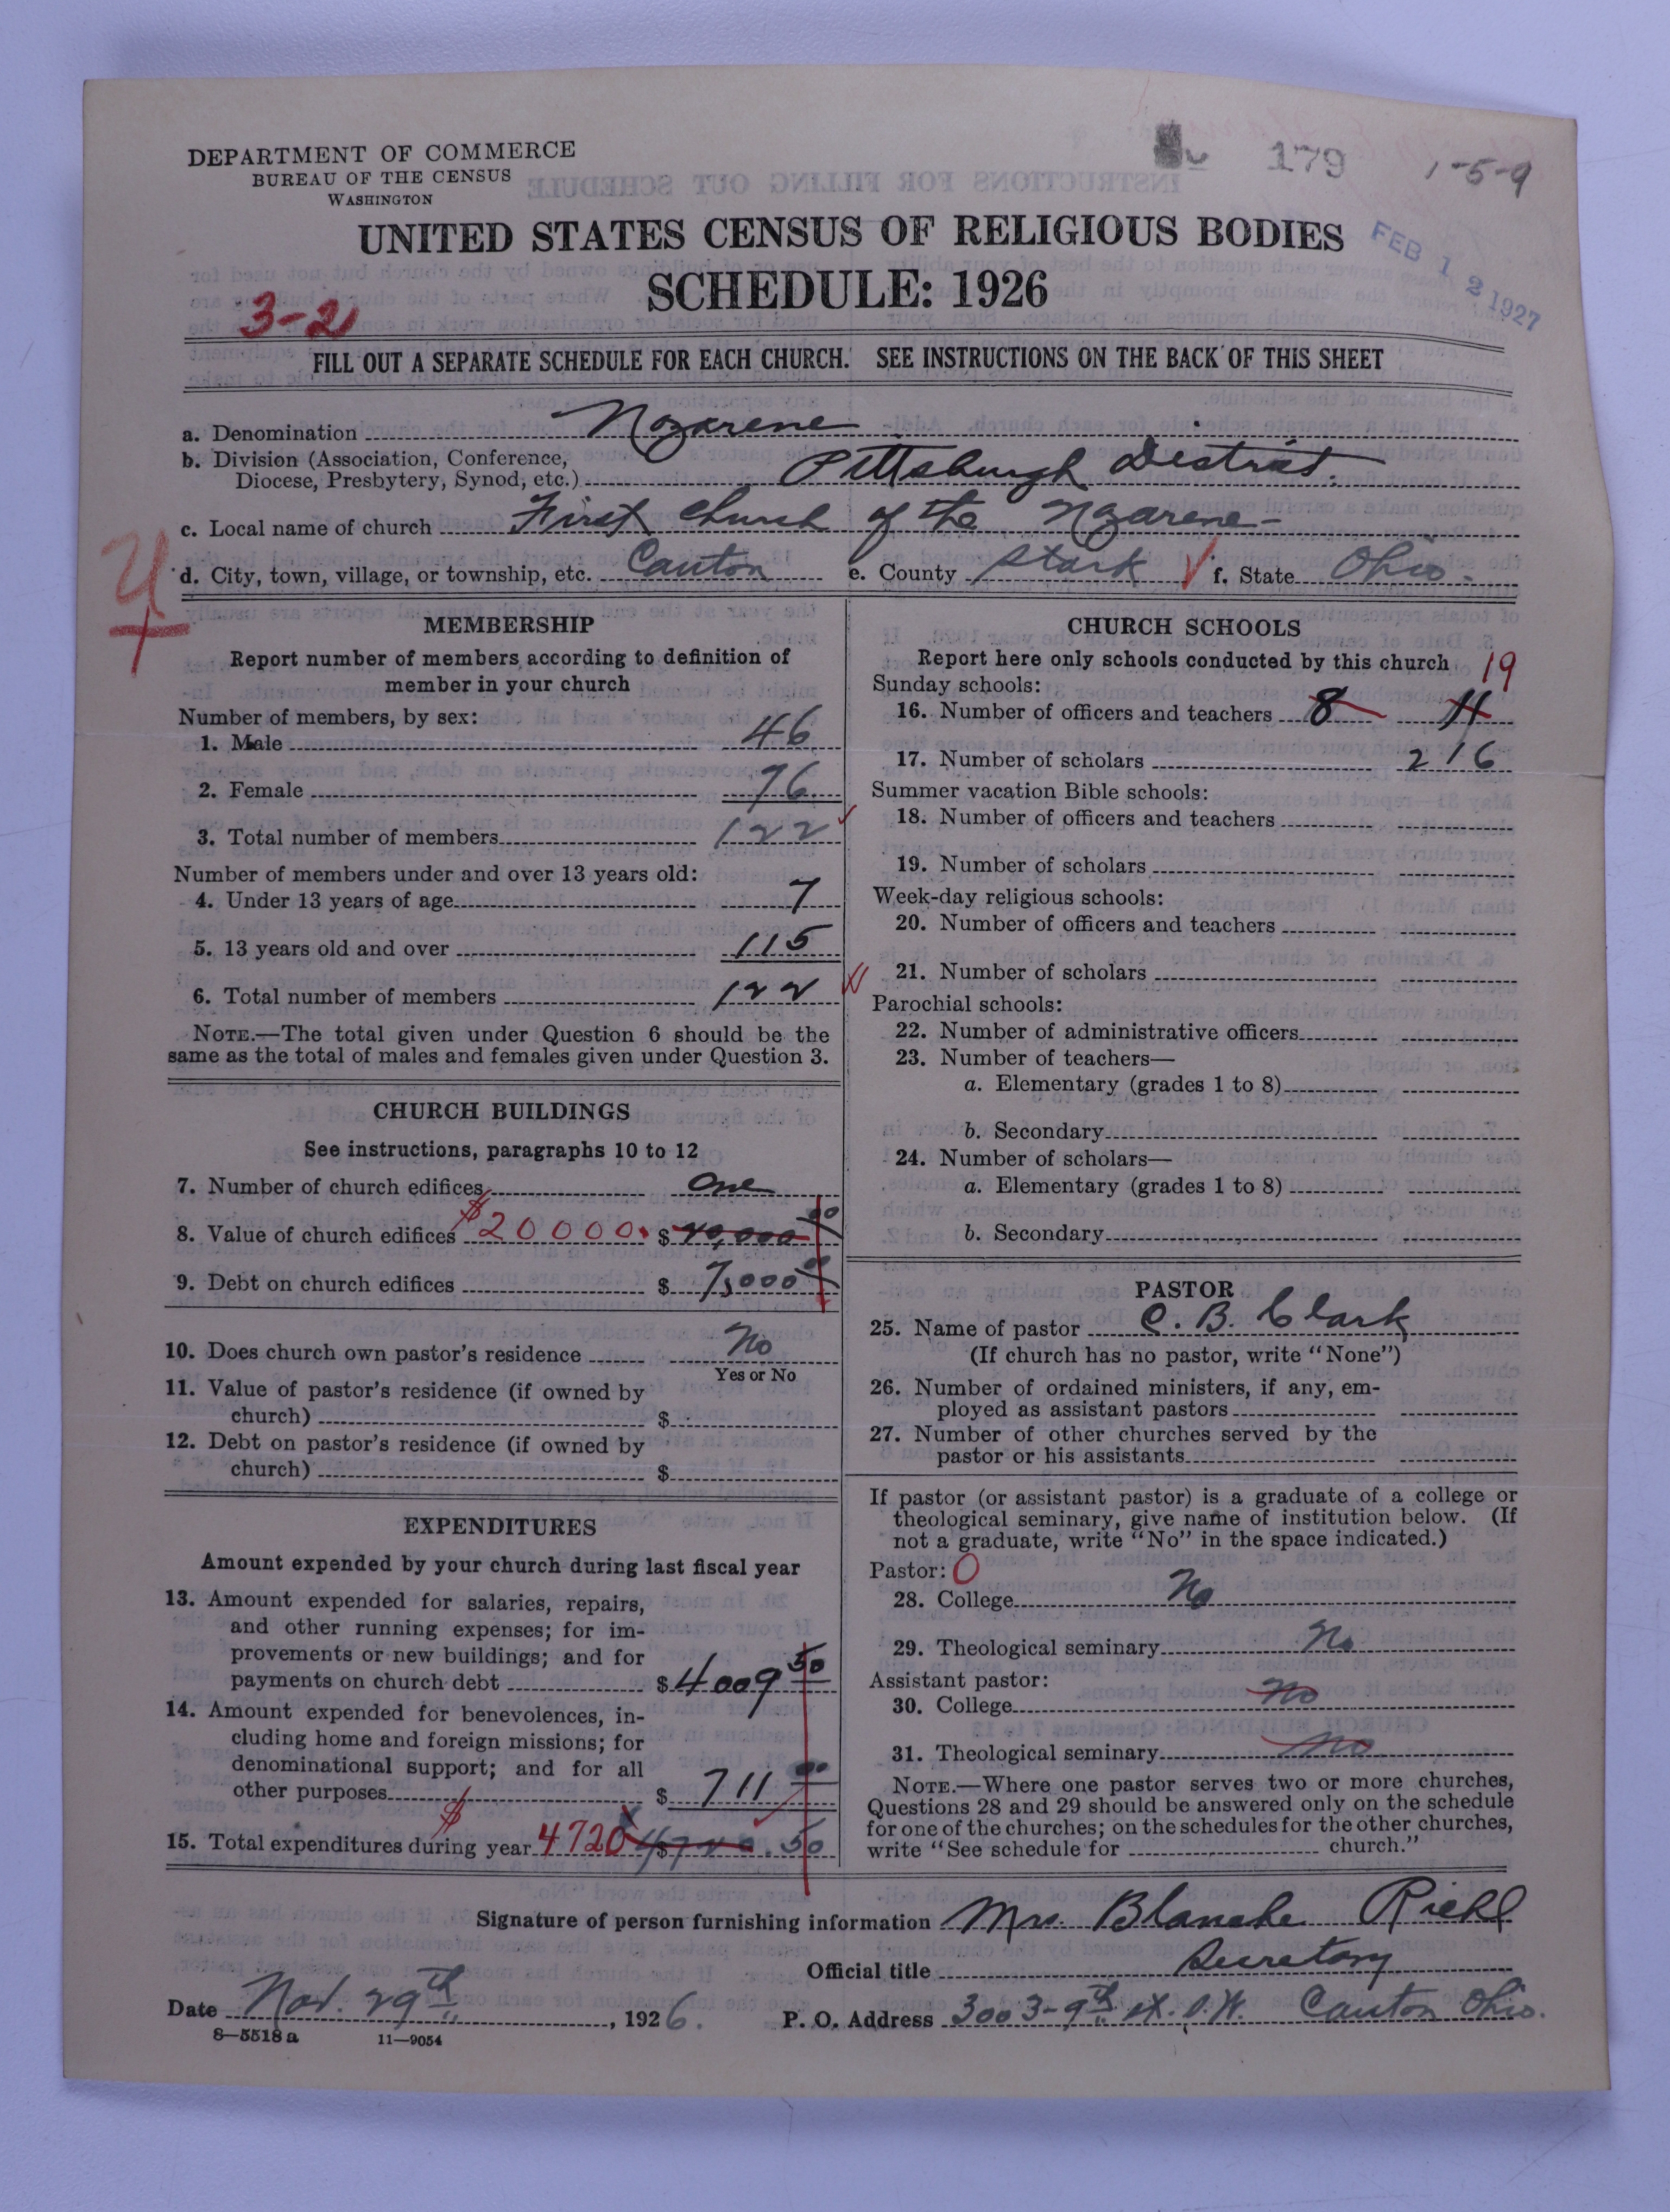 DEPARTMENT OF COMMERCE
BUREAU OF THE CENSUS
WASHINGTON
179
1-5-9
UNITED STATES CENSUS OF RELIGIOUS BODIES
SCHEDULE: 1926
FEB 12 1927
3-2
FILL OUT A SEPARATE SCHEDULE FOR EACH CHURCH. SEE INSTRUCTIONS ON THE BACK OF THIS SHEET
a. Denomination Nazarene
b. Division (Association, Conference, Diocese, Presbytery, Synod, etc.) Pittsburgh District.
c. Local name of church First Church of the Nazarene-
d. City, town, village, or township, etc. Canton e. County Stark f. State Ohio.
MEMBERSHIP
Report number of members according to definition of
member in your church
Number of members, by sex:
1. Male 46
2. Female 76
3. Total number of members 122
Number of members under and over 13 years old:
4. Under 13 years of age 7
5. 13 years old and over 115
6. Total number of members 122
NOTE.—The total given under Question 6 should be the
same as the total of males and females given under Question 3.
CHURCH BUILDINGS
See instructions, paragraphs 10 to 12
7. Number of church edifices One
8. Value of church edifices $20000. $ 40,000 00
9. Debt on church edifices $ 7,000 00
10. Does church own pastor's residence No
Yes or No
11. Value of pastor's residence (if owned by
church) $
12. Debt on pastor's residence (if owned by
church) $
EXPENDITURES
Amount expended by your church during last fiscal year
13. Amount expended for salaries, repairs,
and other running expenses; for im-
provements or new buildings; and for
payments on church debt $ 4009 50
14. Amount expended for benevolences, in-
cluding home and foreign missions; for
denominational support; and for all
other purposes $ 711 00
15. Total expenditures during year $4720 .50
CHURCH SCHOOLS
Report here only schools conducted by this church
19
Sunday schools:
16. Number of officers and teachers 8 11
17. Number of scholars 216
Summer vacation Bible schools:
18. Number of officers and teachers
19. Number of scholars
Week-day religious schools:
20. Number of officers and teachers
21. Number of scholars
Parochial schools:
22. Number of administrative officers
23. Number of teachers—
a. Elementary (grades 1 to 8)
b. Secondary
24. Number of scholars—
a. Elementary (grades 1 to 8)
b. Secondary
PASTOR
25. Name of pastor C. B. Clark
(If church has no pastor, write "None")
26. Number of ordained ministers, if any, em-
ployed as assistant pastors
27. Number of other churches served by the
pastor or his assistants
If pastor (or assistant pastor) is a graduate of a college or
theological seminary, give name of institution below. (If
not a graduate, write "No" in the space indicated.)
Pastor: O
28. College No
29. Theological seminary No
Assistant pastor:
30. College No
31. Theological seminary No
NOTE.—Where one pastor serves two or more churches,
Questions 28 and 29 should be answered only on the schedule
for one of the churches; on the schedules for the other churches,
write "See schedule for church."
Signature of person furnishing information Mrs. Blanche Riehl
Official title Secretary
Date Nov. 29th, 1926. P. O. Address 3003-9th St. S.W. Canton Ohio.
8—5518 a 11—9054